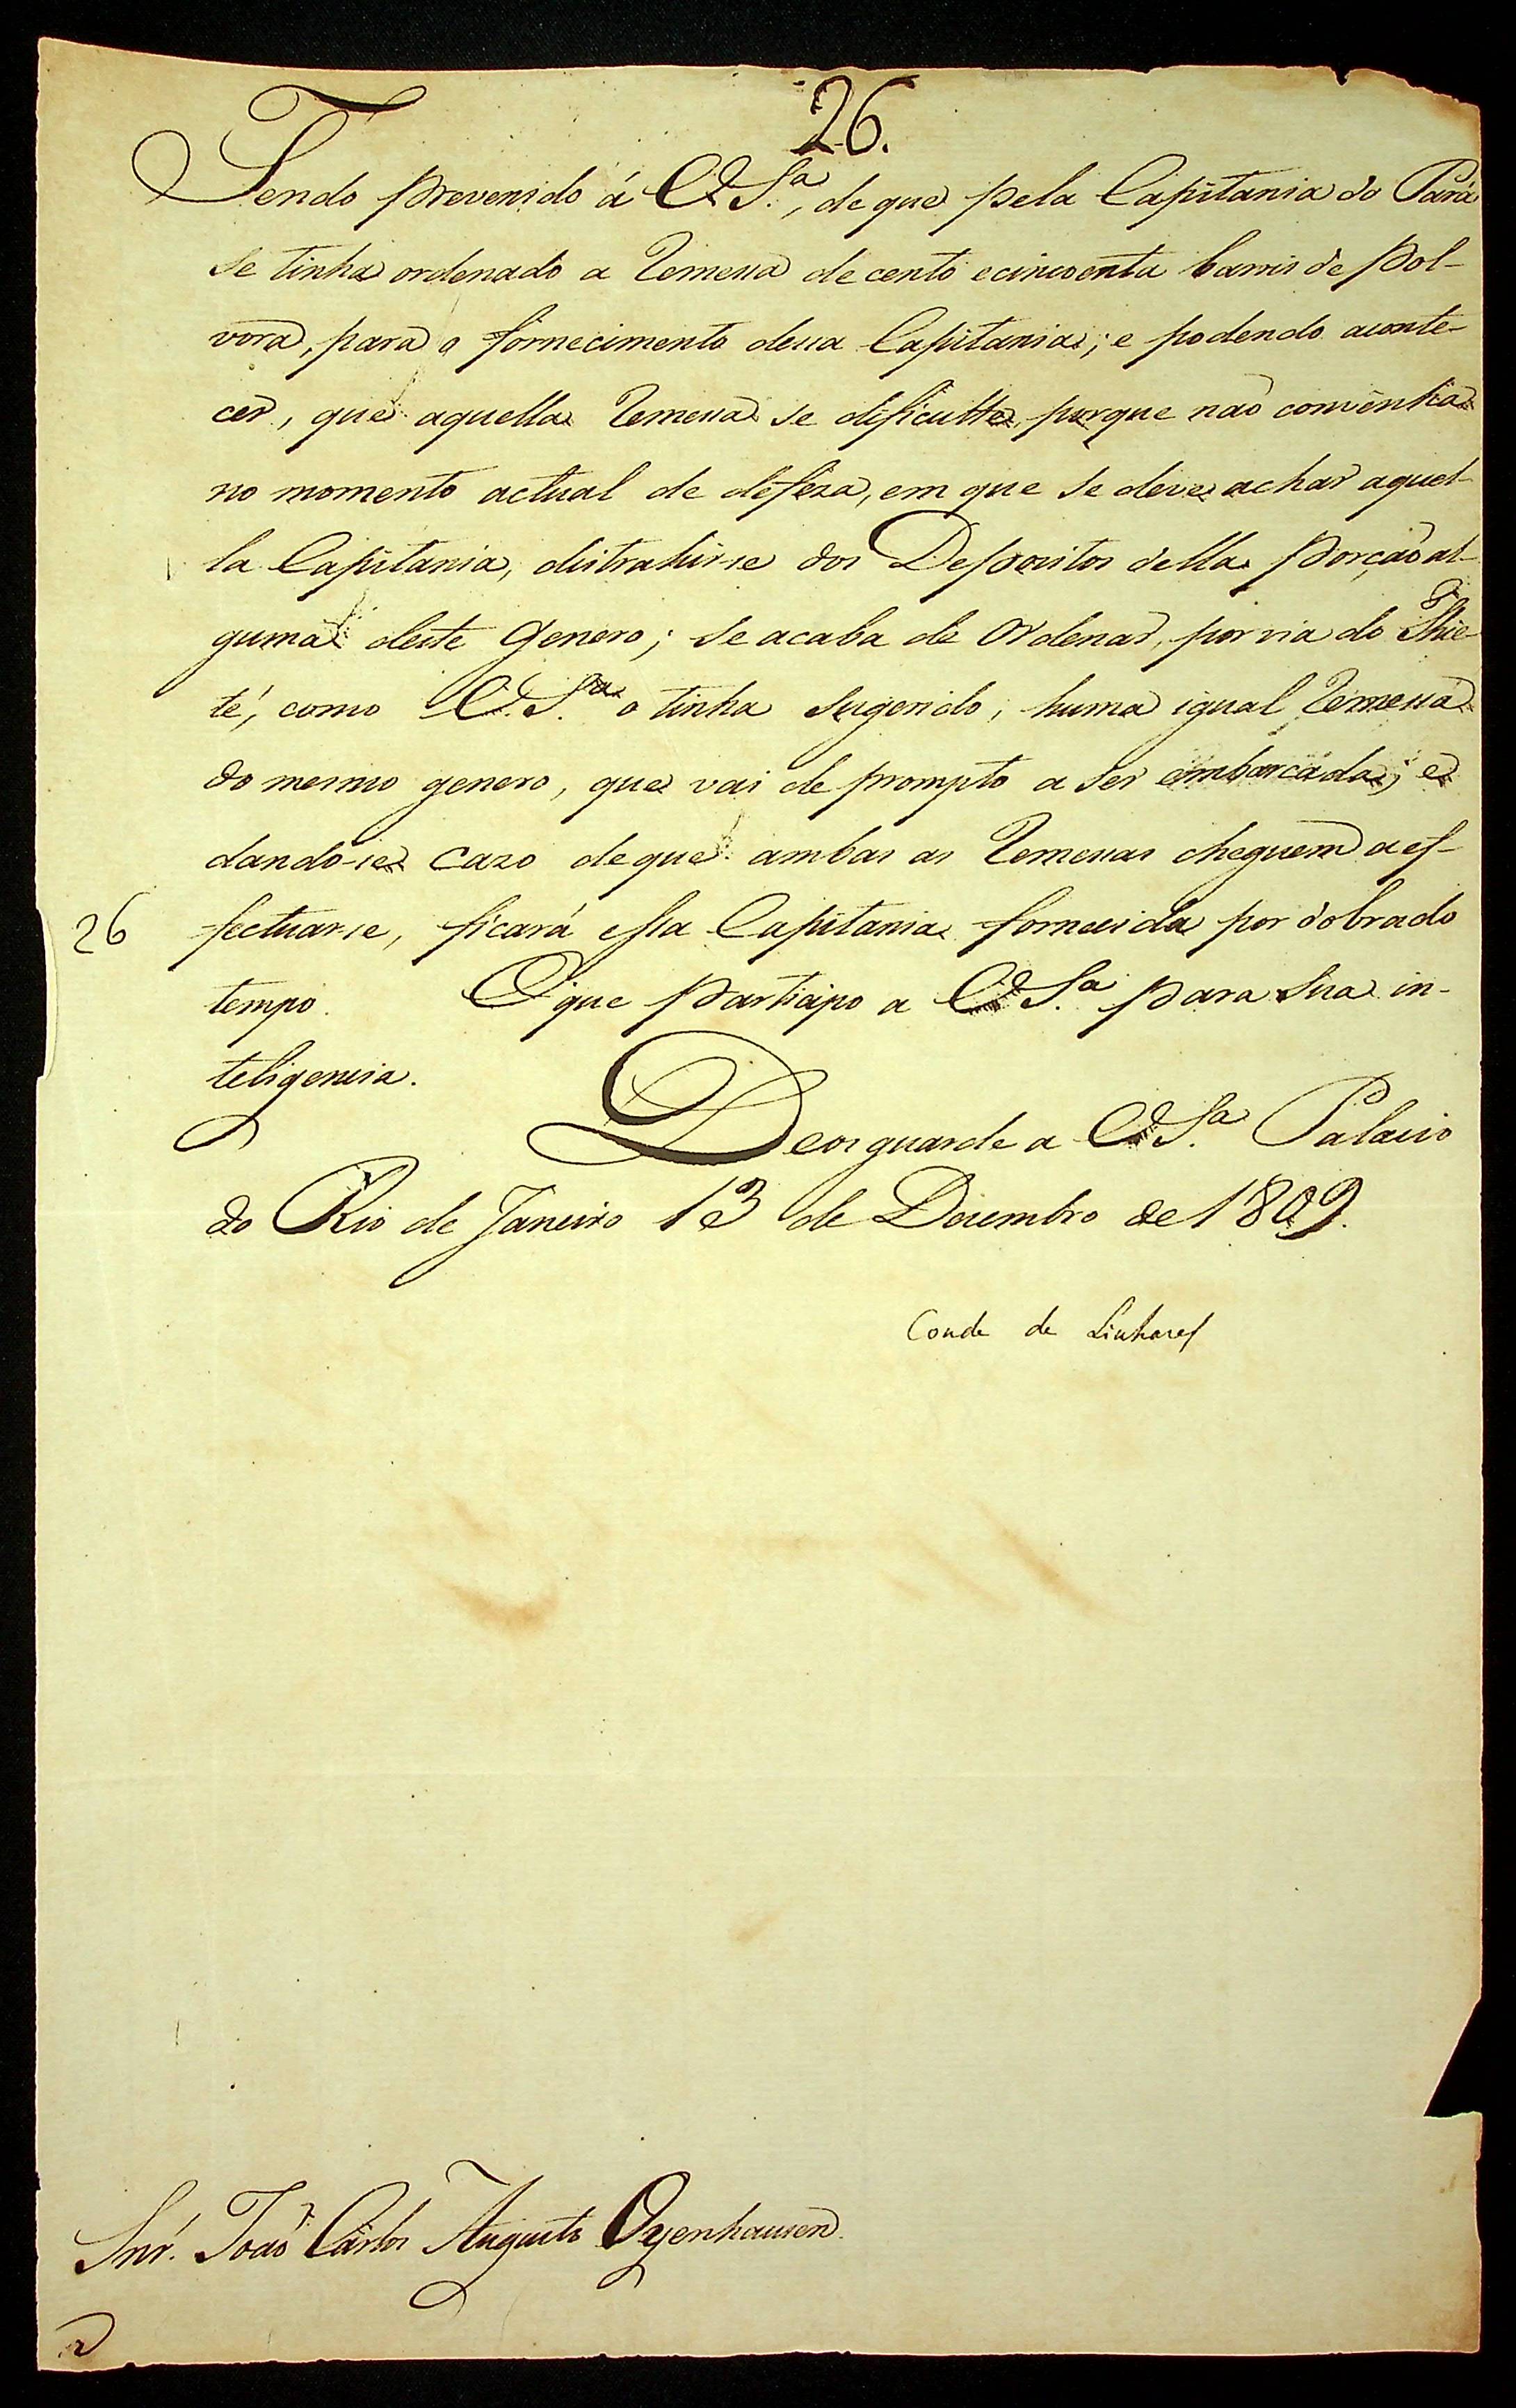 26.
Tendo prevenido á V. S.ª, de que pela Capitania do Pará
se tinha ordenado a remessa de cento e cincoenta barris de pol-
vora, para o fornecimento dessa Capitania; e podendo aconte-
cer, que aquella remessa se dificulte, porque naõ convenha
no momento actual de defeza, em que se deve achar aquel-
la Capitania, distrahir-se dos Depositos della porçaõ al-
guma deste genero; se acaba de ordenar, por via do Thie-
té, como V. S.ª o tinha sugerido, huma igual remessa
do mesmo genero, que vai de prompto a ser embarcada; e
dando-se cazo de que ambas as remessas cheguem a ef-
26 fectuar-se, ficará essa Capitania fornecida por dobrado
tempo. O que participo a V. S.ª para sua in-
teligencia.
Deos guarde a V. S.ª Palacio
do Rio de Janeiro 13 de Dezembro de 1809.
Conde de Linhares
Snr. Joaõ Carlos Augusto Oyenhausen.